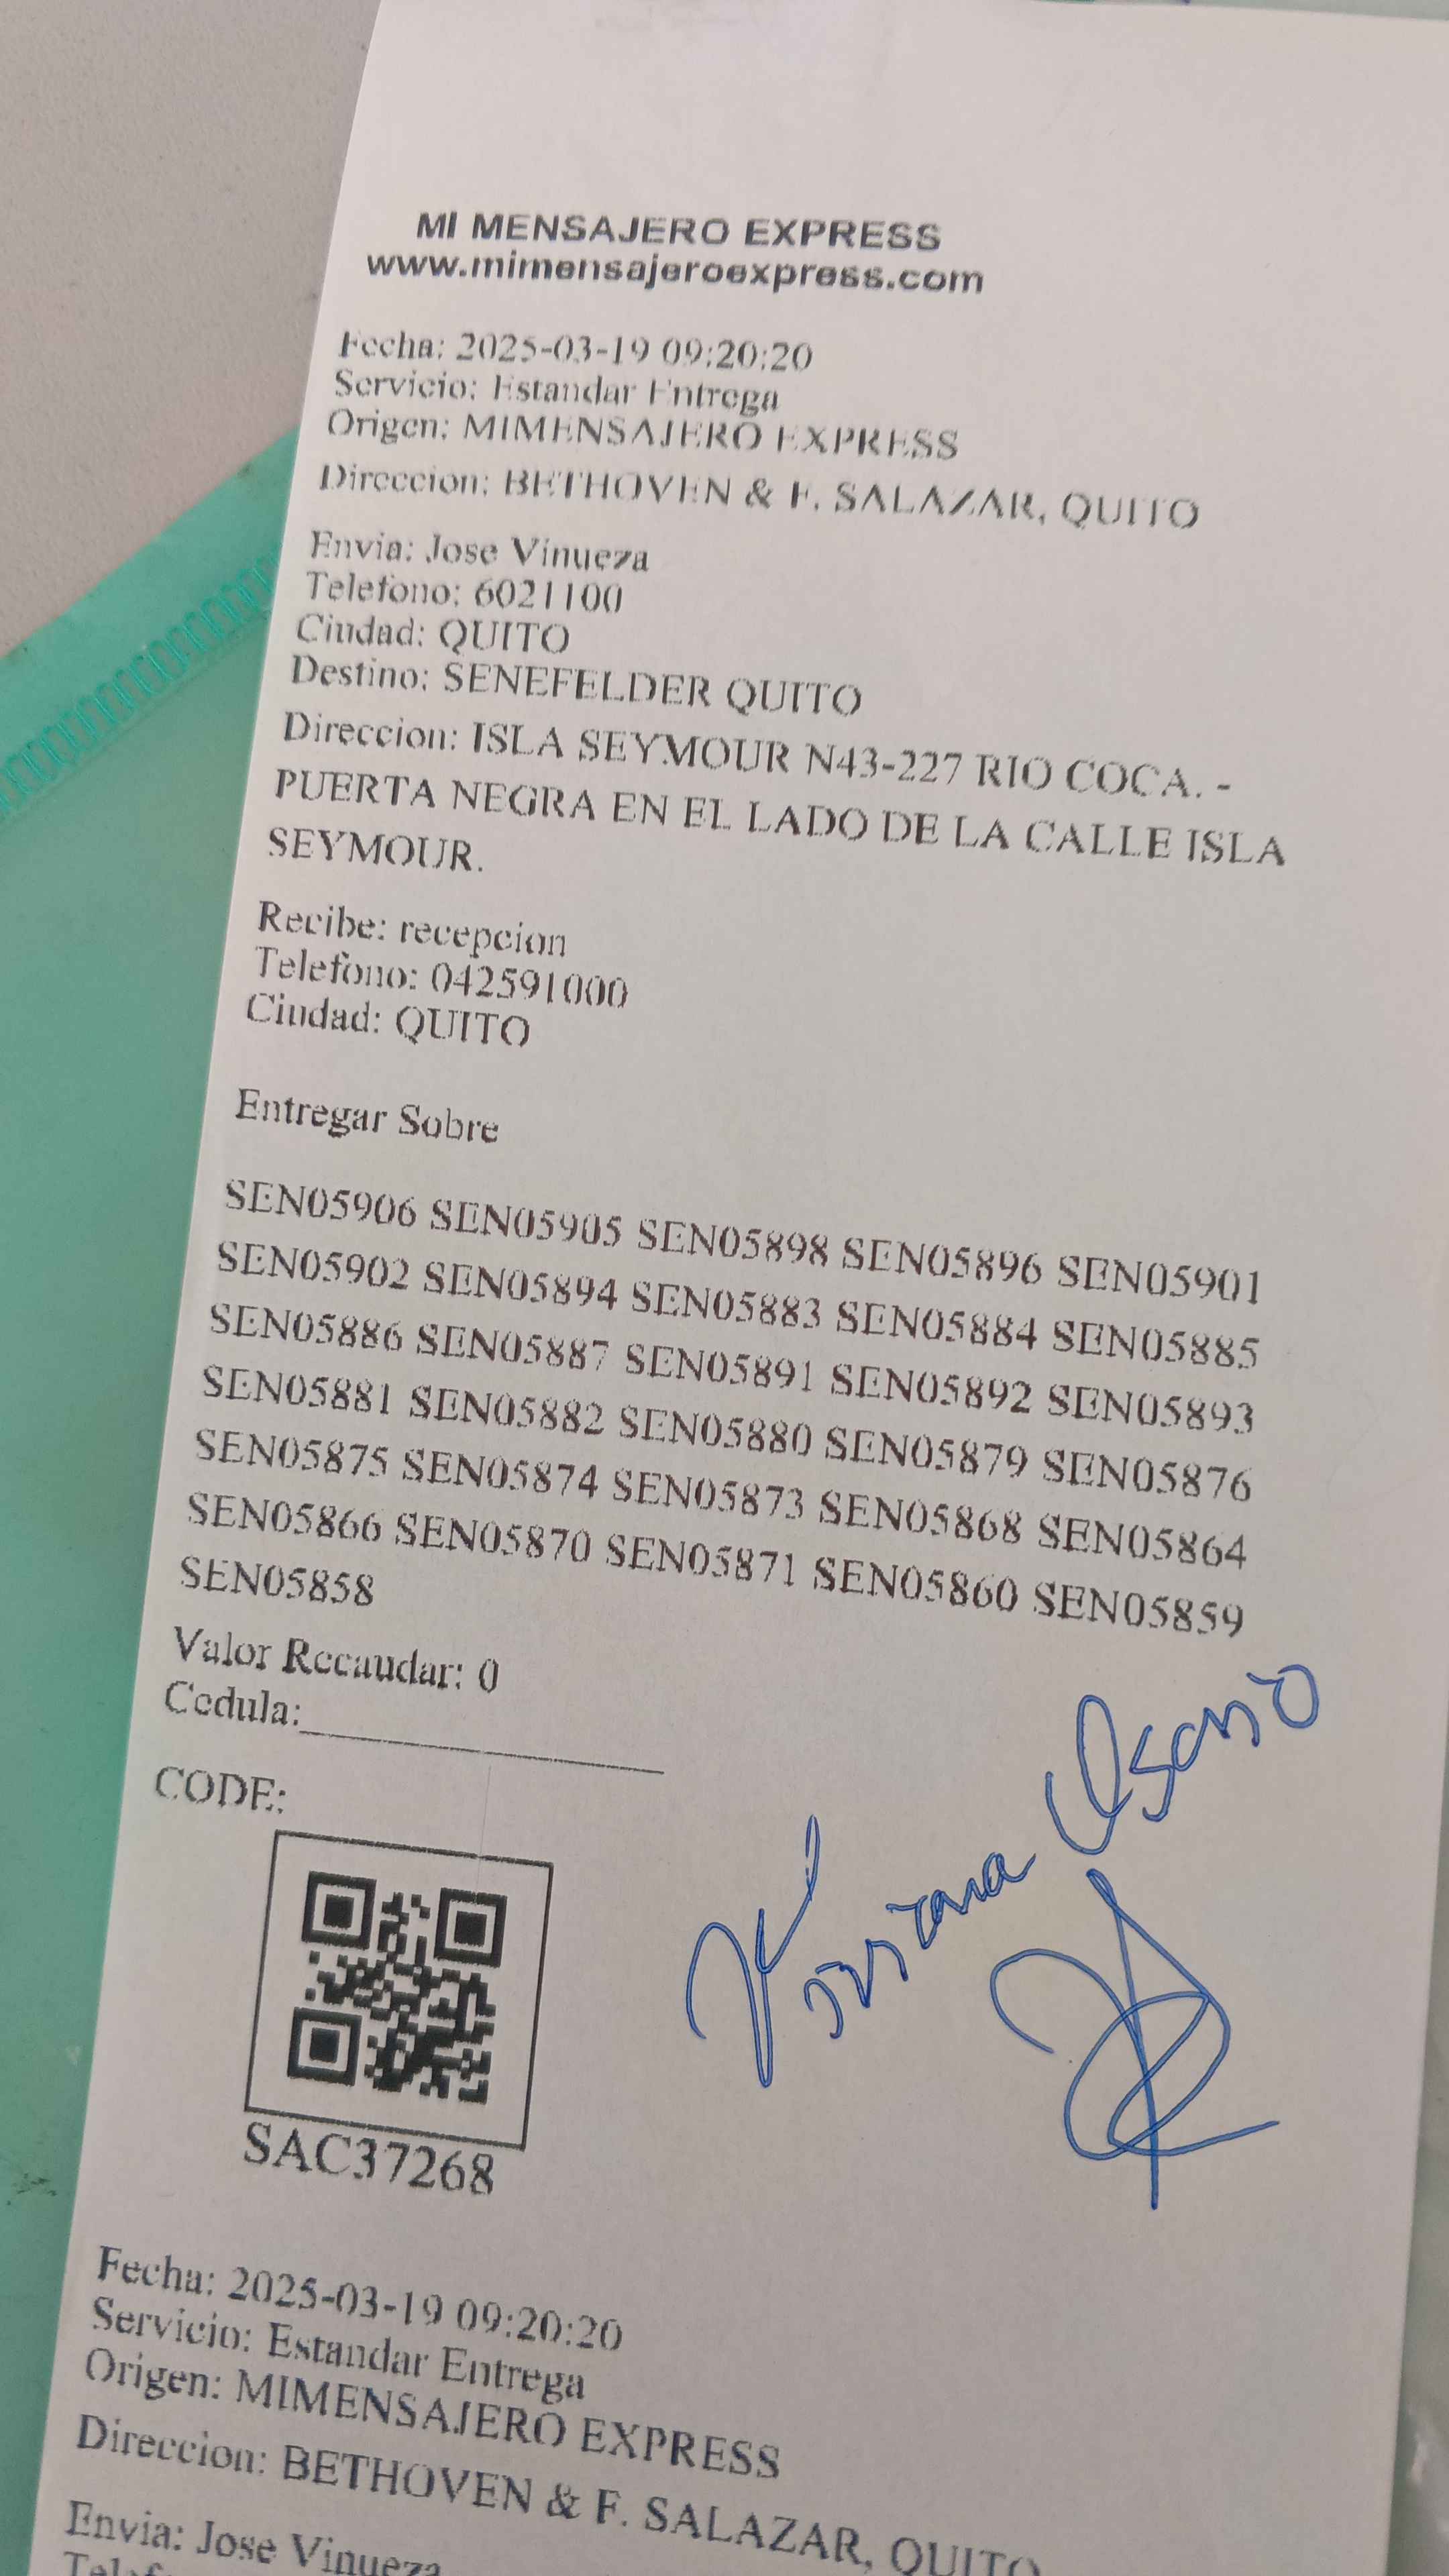 MI MENSAJERO EXPRESS
www.mimensajeroexpress.com
Fecha: 2025-03-19 09:20:20
Servicio: Estandar Entrega
Origen: MIMENSAJERO EXPRESS
Direccion: BETHOVEN & F. SALAZAR, QUITO
Envia: Jose Vinueza
Telefono: 6021100
Ciudad: QUITO
Destino: SENEFELDER QUITO
Direccion: ISLA SEYMOUR N43-227 RIO COCA. -
PUERTA NEGRA EN EL LADO DE LA CALLE ISLA
SEYMOUR.
Recibe: recepcion
Telefono: 042591000
Ciudad: QUITO
Entregar Sobre
SEN05906 SEN05905 SEN05898 SEN05896 SEN05901
SEN05902 SEN05894 SEN05883 SEN05884 SEN05885
SEN05886 SEN05887 SEN05891 SEN05892 SEN05893
SEN05881 SEN05882 SEN05880 SEN05879 SEN05876
SEN05875 SEN05874 SEN05873 SEN05868 SEN05864
SEN05866 SEN05870 SEN05871 SEN05860 SEN05859
SEN05858
Valor Recaudar: 0
Cedula:
CODE:
Viviana
SAC37268
Fecha: 2025-03-19 09:20:20
Servicio: Estandar Entrega
Origen: MIMENSAJERO EXPRESS
Direccion: BETHOVEN & F. SALAZAR, QUITO
Envia: Jose Vinueza